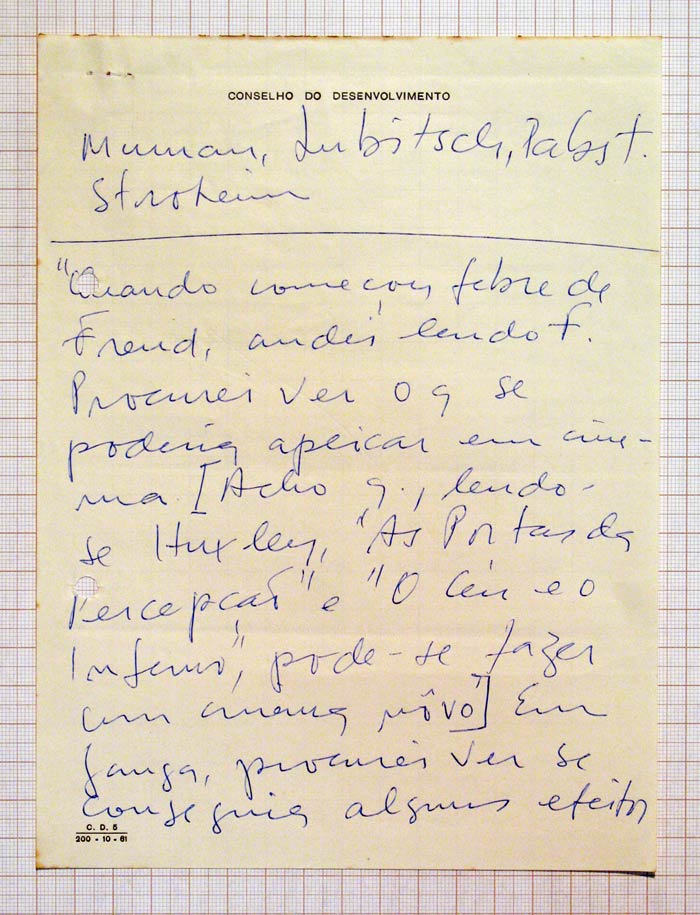 CONSELHO DO DESENVOLVIMENTO
Murnau, Lubitsch, Pabst.
Stroheim
"Quando começou febre de
Freud, andei lendo F.
Procurei ver o q se
poderia aplicar em cine-
ma [Acho q., lendo-
se Huxley, "As Portas da
Percepção" e "O Céu e o
Inferno", pode-se fazer
um cinema nôvo"] Em
ganga, procurei ver se
conseguia alguns efeitos
C. D. 5
200 - 10 - 61